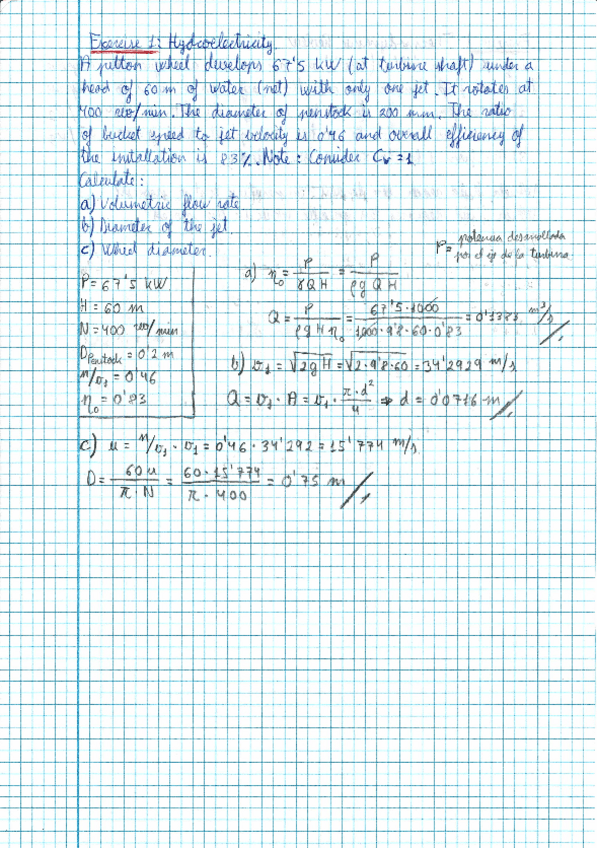 Exercise 1: Hydroelectricity.
A pelton wheel develops 67'5 kW (at turbine shaft) under a
head of 60 m of water (net) with only one jet. It rotates at
400 rev/min. The diameter of penstock is 200 mm. The ratio
of bucket speed to jet velocity is 0'46 and overall efficiency of
the installation is 83%. Note: Consider Cv = 1
Calculate:
a) Volumetric flow rate
b) Diameter of the jet.
c) Wheel diameter.
P = potencia desarrollada por el eje de la turbina.
P = 67'5 kW
H = 60 m
N = 400 rev/min
D Penstock = 0'2 m
u/v₁ = 0'46
η₀ = 0'83
a) η₀ = P/(γQH) = P/(ρgQH)
Q = P/(ρgHη₀) = (67'5·1000)/(1000·9'8·60·0'83) = 0'1383 m³/s
b) v₁ = √(2gH) = √(2·9'8·60) = 34'2929 m/s
Q = v₁·A = v₁·(π·d²)/4 ⇒ d = 0'0716 m
c) u = u/v₁ · v₁ = 0'46 · 34'292 = 15'774 m/s
D = 60u/(π·N) = (60·15'774)/(π·400) = 0'75 m